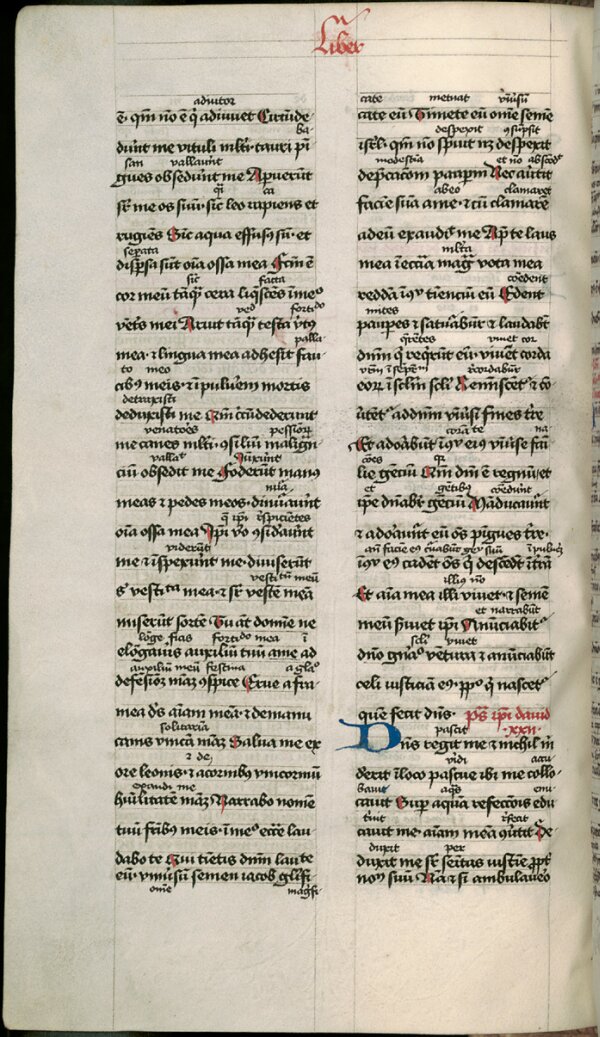 Liber
adiutor
ē· qm̄ nō ē q̇ adiuuet Circūde
ba
dunt me vituli ml̄ti· tauri pī
san vallauūt
gues obsedūnt me Apuerūt
q̄ ca
sr̄ me os suū· sic leo rapiens et
rugiēs Sic aqua effusꝰ sū· et
seperata
disp̄sa sūt oīa ossa mea Fcm̄ ē
sic̄ facta
cor meū tāq̄ cera liq̄scēs ī meᵒ
ved fortido
vētˢ mei Aruit tāq̄ testa v̄tꝰ
palla
mea· ⁊ lingua mea adhesit fau
to meo
cibꝰ meis· ⁊ ī puluerem mortis
detraxisti
deduxisti me Qm̄ circūdederunt
venatores pessiōꝝ
me canes ml̄ti· ꝯsiliū malign̄
vallaᵗ vīxerunt
ciū obsedit me Foderūt manꝰ
meas ⁊ pedes meos· dinūauūt
q̄ ip̄i r̄spiciētes
oīa ossa mea Ip̄i vᵒ ꝯsidauūt
viderūt
me ⁊ īspexerunt me· diuiserūt
vesti tū meū
sᵗ vestita mea· ⁊ sr̄ vestē meā
miserūt sortē Tu aūt domīe ne
lōge fias fortido mea ī
elōgaūis auxiliū tuū a me· ad
auxiliū meū festina a glaᵒ
defensiōꝫ meaꝫ ꝯspice Erue a fra
mea ds̄ aīam meā· ⁊ de manu
solitariā
canis vnicā meaꝫ Salua me ex
⁊ de
ore leonis· ⁊ a cornibꝰ vnicornuū
exaudi me
hūilitatē meaꝫ Narrabo nomē
tuū fr̄ibꝰ meis· ī meᵒ ecc̄e lau
dabo te Qui timetis dn̄m lau te
eū· vniūsuū semen iacob gl̄ifi
om̄e magfi
cate metuat vniūsū
cate eū Timete eū om̄e semē
despexit ꝯtēpsit
isrl̄· qm̄ nō sp̄uit nꝫ despexit
modestiā et nō abscōdᵗ
dep̄cacōm paup̄m Nec aūtit
abeo clamaret
faciē suā a me· ⁊ cū clamarē
ad eū exaudiᵗ me Ap̄ te laus
ml̄ta
mea ī ecc̄ia mag᷑ vota mea
cōedent
reddā ī ꝯv timenciū eū Edent
mites
paup̄es ⁊ satuābūt ⁊ laudabt̄
q̄rētes viuet cor
dn̄m q̇ req̄rūt eū· viuēt corda
vr̄m ī sep̄tᵐ recordabūr
eoꝝ ī scl̄m scl̄i Reminiscēt᷑ ⁊ cō
ūtet᷑ ad dn̄m vniūsi fines tr̄e
corā te na
Et adoābūt ī ꝯv eiꝰ vniūse fā
cōes qi
lie genciū Qm̄ dn̄i ē regnū· et
et gētibꝰ cōedunt
ip̄e dn̄abt᷑ genciū Māducauūt
⁊ adorauūt eū oēs pīgues tr̄e·
ī ꝯv eiꝰ cadēt oēs q̇ descēdt̄ ī t̄rā
illiꝰ nō
Et aīa mea illi viuet· ⁊ semē
et narrabūt
meū s̄uiet ip̄i Anūciabitᷣ
scl̄i viuet
dn̄o gn̄aᵒ ventura ⁊ anūciabūt
celi iusticiā eiꝰ· pp̄lo q̇ nascetᷣ
quē fecit dn̄s· ps̄ ip̄i dauid
pascit ·xxii·
Dn̄s regit me ⁊ nichil m̄
vidi accu
deerit ī loco pascue ibi me collo
bauit aqᵃs enu
cauit Sup̄ aquā refectōis edu
triuit r̄fecit
cauit me· aīam meā ꝯūtit De
duxit per
duxit me sr̄ semitas iusticie ꝓpt̄
nom̄ suū Nā ⁊ si ambulauero